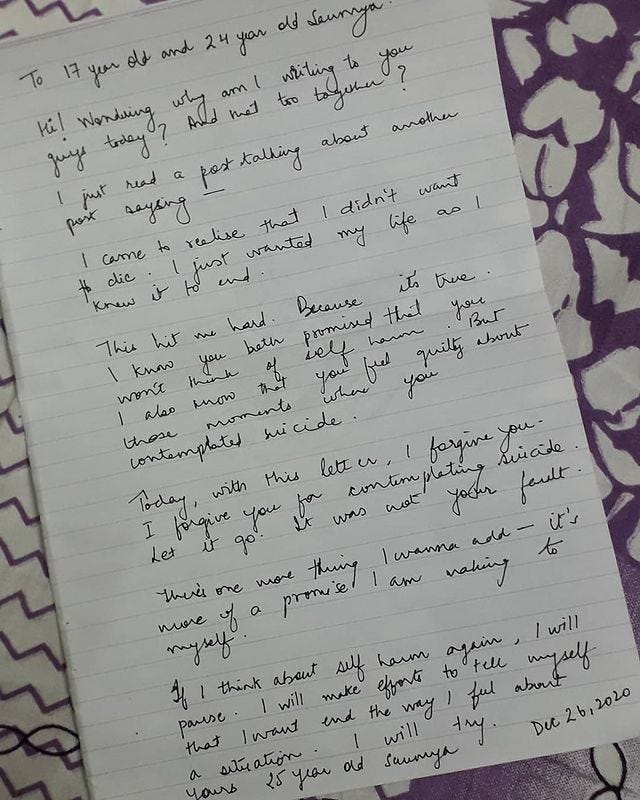 To 17 year old and 24 year old Saumya.
Hi! Wondering why am I writing to you
guys today? And that too together?
I just read a post talking about another
post saying —
I came to realise that I didn't want
to die. I just wanted my life as I
knew it to end.
This hit me hard. Because it's true.
I know you both promised that you
won't think of self harm. But
I also know that you feel guilty about
those moments where you
contemplated suicide.
Today, with this letter, I forgive you.
I forgive you for contemplating suicide.
Let it go. It was not your fault.
There's one more thing I wanna add — it's
more of a promise I am making to
myself.
If I think about self harm again, I will
pause. I will make efforts to tell myself
that I want end the way I feel about
a situation. I will try.
Yours 25 year old Saumya
Dec 26, 2020